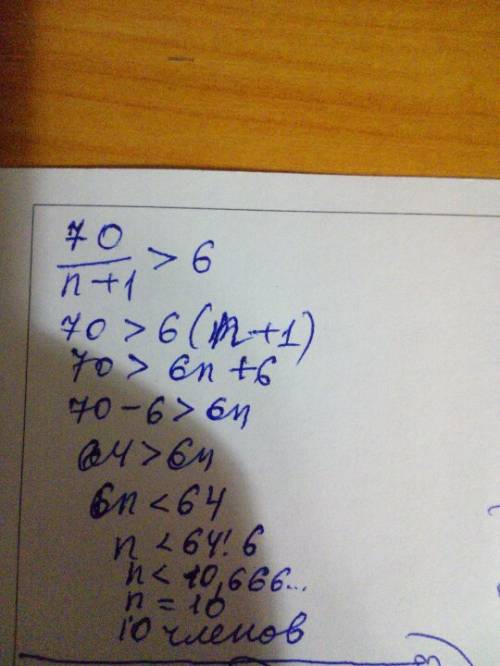 70/(n+1) > 6
70 > 6(n+1)
70 > 6n + 6
70 - 6 > 6n
64 > 6n
6n < 64
n < 64 : 6
n < 10,666...
n = 10
10 членов